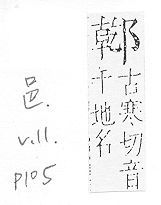 古寒切音
干地名
邑.
v.11.
p105